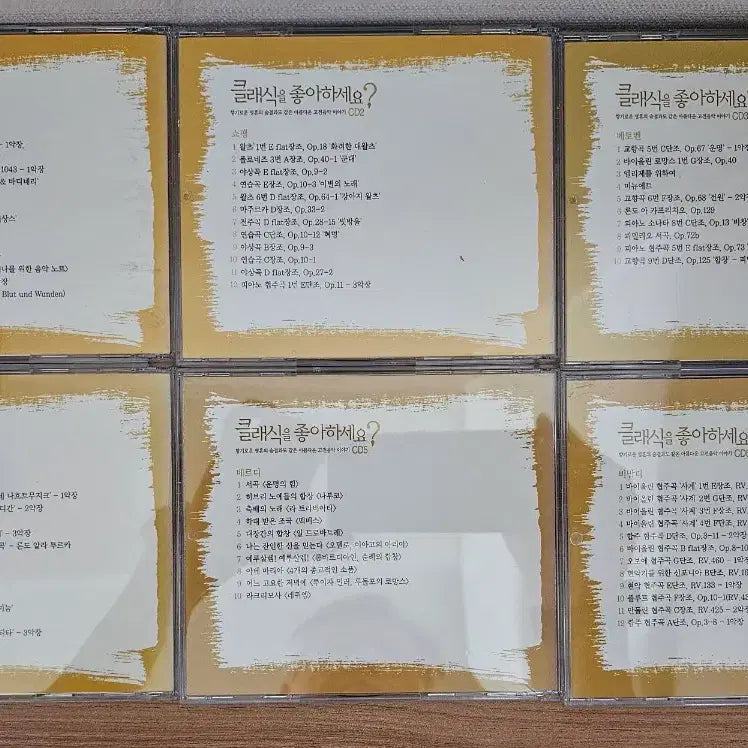 - 1악장
1043 - 1악장
& 바디네리'
나를 위한 음악 노트》
Blut und Wunden)
클래식을 좋아하세요?
향기로운 영혼의 숨결과도 같은 아름다운 고전음악 이야기 CD2
쇼팽
1 왈츠 1번 E flat장조, Op.18 '화려한 대왈츠'
2 폴로네즈 3번 A장조, Op.40-1 '군대'
3 야상곡 E flat장조, Op.9-2
4 연습곡 E장조, Op.10-3 '이별의 노래'
5 왈츠 6번 D flat장조, Op.64-1 '강아지 왈츠'
6 마주르카 D장조, Op.33-2
7 전주곡 D flat장조, Op.28-15 '빗방울'
8 연습곡 C단조, Op.10-12 '혁명'
9 야상곡 B장조, Op.9-3
10 연습곡 C장조, Op.10-1
11 야상곡 D flat장조, Op.27-2
12 피아노 협주곡 1번 E단조, Op.11 - 3악장
클래식을 좋아하세요
향기로운 영혼의 숨결과도 같은 아름다운 고전음악 이야기 CD3
베토벤
1 교향곡 5번 C단조, Op.67 '운명' - 1악장
2 바이올린 로망스 1번 G장조, Op.40
3 엘리제를 위하여
4 미뉴에트
5 교향곡 6번 F장조, Op.68 '전원' - 2악장
6 론도 아 카프리치오 Op.129
7 피아노 소나타 8번 C단조, Op.13 '비창'
8 피델리오 서곡, Op.72b
9 피아노 협주곡 5번 E flat장조, Op.73
10 교향곡 9번 D단조, Op.125 '합창' -
네 나흐트무지크' - 1악장
- 2악장
- 3악장
- 론도 알라 투르카
- 3악장
클래식을 좋아하세요?
향기로운 영혼의 숨결과도 같은 아름다운 고전음악 이야기 CD5
베르디
1 서곡 《운명의 힘》
2 히브리 노예들의 합창 《나부코》
3 축배의 노래 《라 트라비아타》
4 학대 받은 조국 《맥베스》
5 대장간의 합창 《일 트로바토레》
6 나는 잔인한 신을 믿는다 《오텔로, 이아고의 아리아》
7 예루살렘! 예루살렘! 《롬바르디아인, 순례의 합창》
8 아베 마리아 《4개의 종교적인 소품》
9 어느 고요한 저녁에 《루이자 밀러, 루돌포의 로망스》
10 라크리모사 《레퀴엠》
클래식을 좋아하세요
향기로운 영혼의 숨결과도 같은 아름다운 고전음악 이야기
비발디
1 바이올린 협주곡 '사계' 1번 E장조, RV.
2 바이올린 협주곡 '사계' 2번 G단조, RV.
3 바이올린 협주곡 '사계' 3번 F장조, RV.
4 바이올린 협주곡 '사계' 4번 F단조, RV.
5 합주 협주곡 D단조, Op.3-11 - 2악장
6 바이올린 협주곡 B flat장조, Op.8-10
7 오보에 협주곡 G장조, RV.460 - 1악장
8 현악기를 위한 신포니아 B단조, RV.
9 현악 협주곡 E단조, RV.133 - 1악장
10 플루트 협주곡 F장조, Op.10-1(RV.43
11 만돌린 협주곡 C장조, RV.425 - 2악장
12 합주 협주곡 A단조, Op.3-8 - 1악장